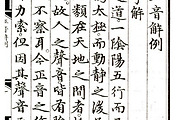 音解例
解
道一陰陽五行而
太極而動靜之後
類在天地之間者
故人之聲音皆有陰
不察耳今正音之作
力索但因其聲音而